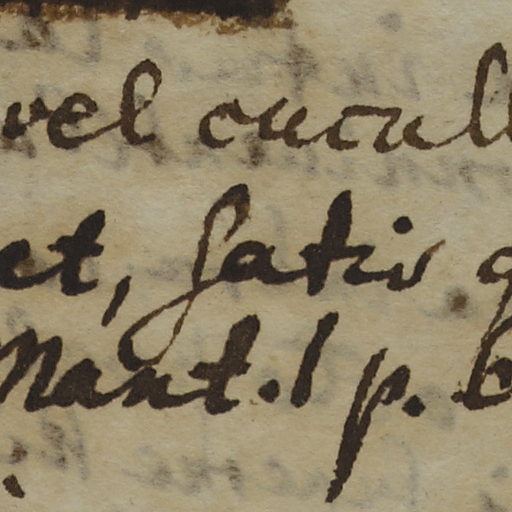 vel cucull
et, satis
Mant. 1 p.